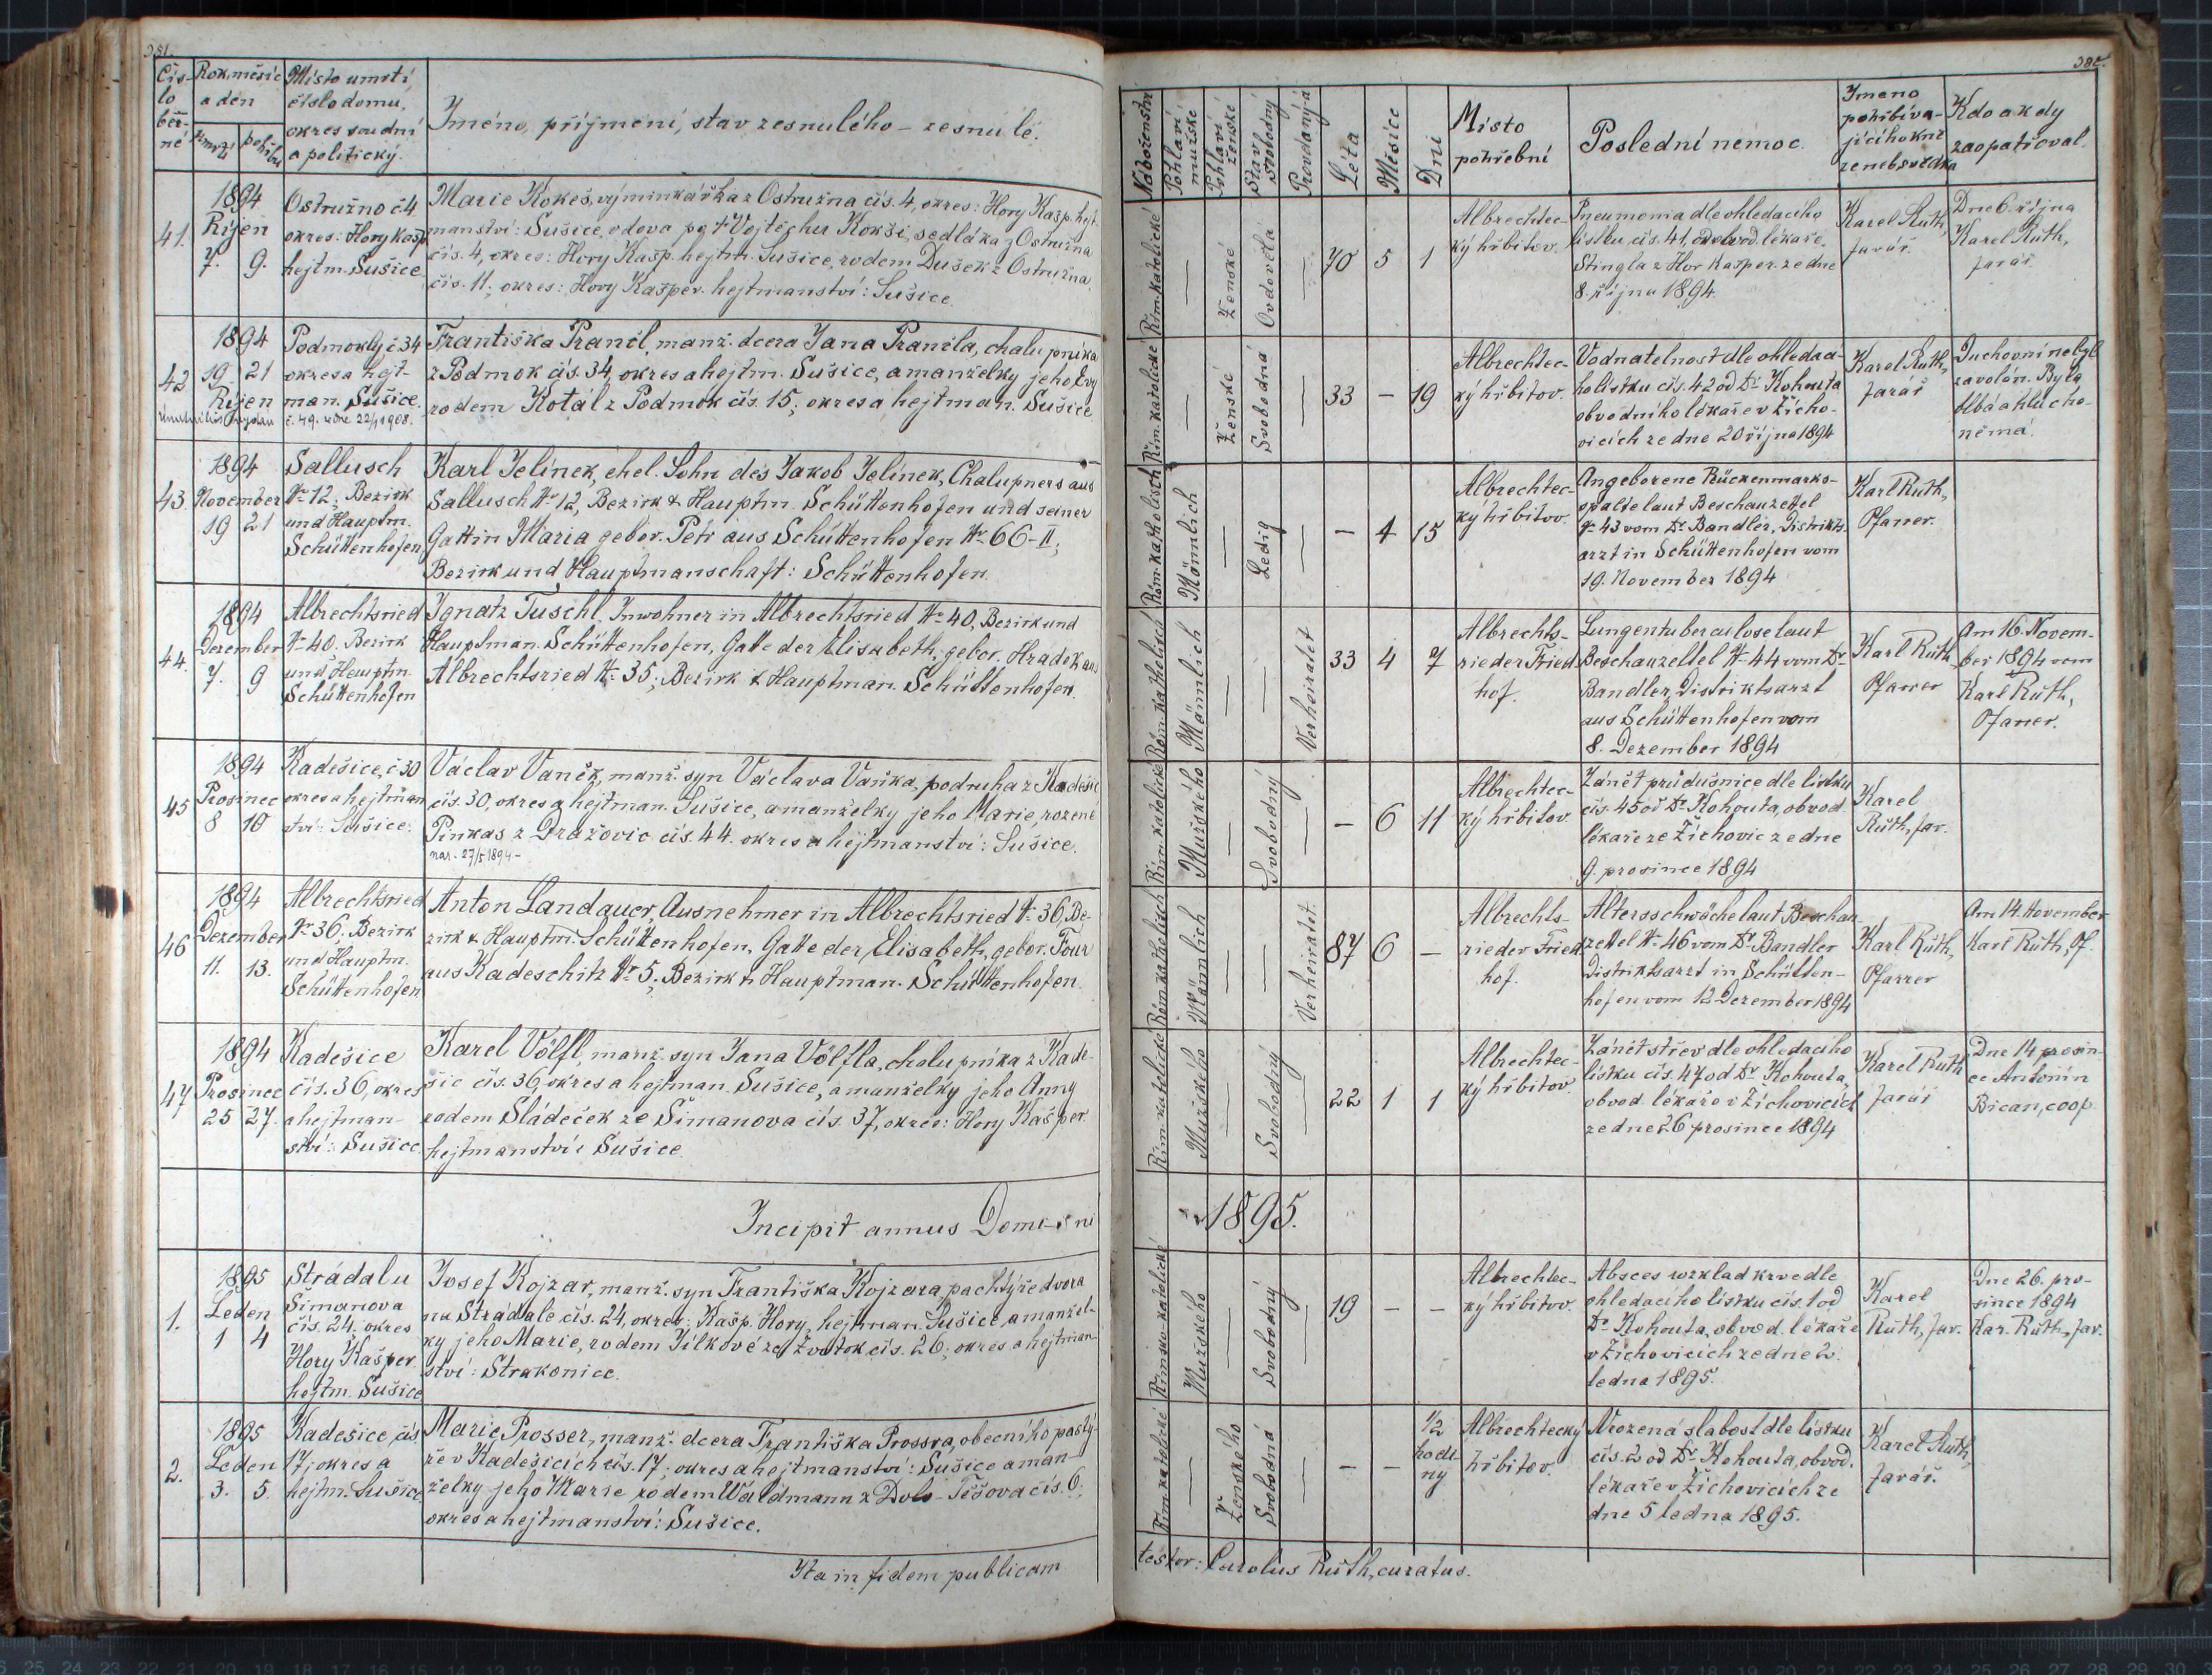 381.
Čís-
lo
běž-
né
Rok, měsíc
a den
úmrtí
pohřbu
Místo umrtí,
číslo domu,
okres soudní
a politický.
Jméno, příjmení, stav zesnulého - zesnulé.
41.
1894
Říjen
7. 9.
Ostružno č 4
okres: Hory Kašp.
hejtm. Sušice
Marie Kokeš, výminkářka z Ostružna čís. 4, okres: Hory Kašp. hejt-
manství: Sušice, vdova po † Vojtěchu Kokši, sedláka z Ostružna
čís. 4, okres: Hory Kašp. hejtm. Sušice, rodem Dušek z Ostružna
čís. 11; okres: Hory Kašper. hejtmanství: Sušice.
42
1894
19 21
Říjen
Podmokly č 34
okres a hejt-
man. Sušice.
č. 49. ze dne 22/1 1908.
Františka Prančl, manž. dcera Jana Prančla, chalupníka
z Podmok čís. 34, okres a hejtm. Sušice, a manželky jeho Evy
rodem Kotál z Podmok čís. 15; okres a hejtman. Sušice
43.
1894
November
19 21
Sallusch
Nr 12, Bezirk
und Hauptm.
Schüttenhofen
Karl Jelínek, ehel. Sohn des Jakob Jelínek, Chalupners aus
Sallusch Nr 12, Bezirk & Hauptm. Schüttenhofen und seiner
Gattin Maria gebor. Petr aus Schüttenhofen Nr 66-II;
Bezirk und Hauptmanschaft: Schüttenhofen.
44.
1894
Dezember
7. 9
Albrechtsried
Nr 40. Bezirk
und Hauptm.
Schüttenhofen
Ignatz Tuschl, Inwohner in Albrechtsried Nr 40, Bezirk und
Hauptman. Schüttenhofen, Gatte der Elisabeth, gebor. Hradek aus
Albrechtsried Nr 35; Bezirk & Hauptman. Schüttenhofen.
45
1894
Prosinec
8 10
Kadešice, č 30
okres a hejtman
ství: Sušice.
Václav Vaněk, manž. syn Václava Vaňka, podruha z Kadešic
čís. 30, okres a hejtman. Sušice, a manželky jeho Marie, rozené
Pinkas z Dražovic čís. 44. okres a hejtmanství: Sušice.
nar. 27/5 1894 -
46
1894
Dezember
11. 13.
Albrechtsried
Nr 36, Bezirk
und Hauptm.
Schüttenhofen
Anton Landauer, Ausnehmer in Albrechtsried Nr 36, Be-
zirk & Hauptm. Schüttenhofen, Gatte der Elisabeth, gebor. Tour
aus Kadeschitz Nr 5; Bezirk & Hauptman. Schüttenhofen.
47
1894
Prosinec
25 27.
Kadešice
čís. 36, okres
a hejtman-
ství: Sušice.
Karel Völfl, manž. syn Jana Völfla, chalupníka z Kade-
šic čís. 36, okres a hejtman. Sušice, a manželky jeho Anny
rodem Sládeček ze Šimanova čís. 37, okres: Hory Kašper.
hejtmanství: Sušice.
Incipit annus Domini
1.
1895
Leden
1 4
Strádalu
Šimanova
čís. 24. okres
Hory Kašper.
hejtm. Sušice
Josef Kojzar, manž. syn Františka Kojzara, pachtýře dvora
na Strádale čís. 24, okres: Kašp. Hory, hejtman. Sušice, a manžel-
ky jeho Marie, rodem Jílkové ze Zvotok čís. 26; okres a hejtman-
ství: Strakonice.
2.
1895
Leden
3. 5.
Kadešice, čís.
17; okres a
hejtm. Sušice
Marie Prosser, manž. dcera Františka Prossra, obecního pastý-
ře v Kadešicích čís. 17; okres a hejtmanství: Sušice a man-
želky jeho Marie rodem Waldmann z Dol. - Těšova čís. 6;
okres a hejtmanství: Sušice.
Ita in fidem publicam
382.
Náboženství
Pohlaví
mužské
Pohlaví
ženské
Stav
svobodný
Provdaný-á
Léta
Měsíce
Dni
Místo
pohřební
Poslední nemoc.
Jmeno
pohřbíva-
jícího kně
ze neb svědka
Kdo a kdy
zaopatřoval.
Řím. katolické
—
Ženské
Ovdovělá
—
70 5 1
Albrechtec-
ký hřbitov.
Pneumonia dle ohledacího
lístku, čís. 41, od obvod. lékaře
Stingla z Hor Kašper. ze dne
8. října 1894.
Karel Ruth,
farář.
Dne 6. října
Karel Ruth,
farář.
Řím. katolické
—
Ženské
Svobodná
—
33 - 19
Albrechtec-
ký hřbitov.
Vodnatelnost dle ohledací-
ho lístku čís. 42 od Dr Kohouta
obvodního lékaře v Žicho-
vicích ze dne 20 října 1894
Karel Ruth,
farář
Duchovní nebyl
zavolán. Byla
blbá a hlucho-
němá.
Röm. katholisch
Männlich
—
Ledig
—
- 4 15
Albrechtec-
ký hřbitov.
Angeborene Rückenmarks-
spalte laut Beschauzettel
Nr 43 vom Dr Bandler, Distrikts-
arzt in Schüttenhofen vom
19. November 1894
Karl Ruth,
Pfarrer.
Röm. katholisch
Männlich
—
—
Verheiratet
33 4 7
Albrechts-
rieder Fried
hof.
Lungentuberculose laut
Beschauzettel Nr 44 vom Dr
Bandler, Distriktsarzt
aus Schüttenhofen vom
8. Dezember 1894
Karl Ruth
Pfarrer
Am 16. Novem-
ber 1894 vom
Karl Ruth,
Pfarrer.
Řím. katolické
Mužského
—
Svobodný
—
- 6 11
Albrechtec-
ký hřbitov
Zánět průdušnice dle lístku
čís. 45 od Dr Kohouta, obvod.
lékaře ze Žichovic ze dne
9. prosince 1894
Karel
Ruth, far.
Röm. katholisch
Männlich
—
—
Verheiratet
87 6 -
Albrechts-
rieder Fried
hof.
Altersschwäche laut Beschau
zettel Nr 46 vom Dr Bandler
Distriktsarzt in Schütten-
hofen vom 12 Dezember 1894
Karl Ruth,
Pfarrer
Am 14. November
Karl Ruth, Pf.
Řím. katolické
Mužského
—
Svobodný
—
22 1 1
Albrechtec-
ký hřbitov.
Zánět střev dle ohledacího
lístku čís. 47 od Dr Kohouta,
obvod. lékaře v Žichovicích
ze dne 26 prosince 1894
Karel Ruth
farář
Dne 14 prosin-
ce Antonín
Bican, coop.
1895.
Římsko-katolické
Mužského
—
Svobodný
—
19 - -
Albrechtec-
ký hřbitov.
Absces rozklad krve dle
ohledacího lístku čís. 1 od
Dr Kohouta, obvod. lékaře
v Žichovicích ze dne 2.
ledna 1895.
Karel
Ruth, far.
Dne 26. pro-
since 1894
Kar. Ruth, far.
Řím. katolické
—
Ženského
Svobodná
- - 1/2
hodi-
ny
Albrechtecký
hřbitov.
Vrozená slabost dle lístku
čís. 2 od Dr Kohouta, obvod.
lékaře v Žichovicích ze
dne 5 ledna 1895.
Karel Ruth,
farář.
testor: Carolus Ruth, curatus.